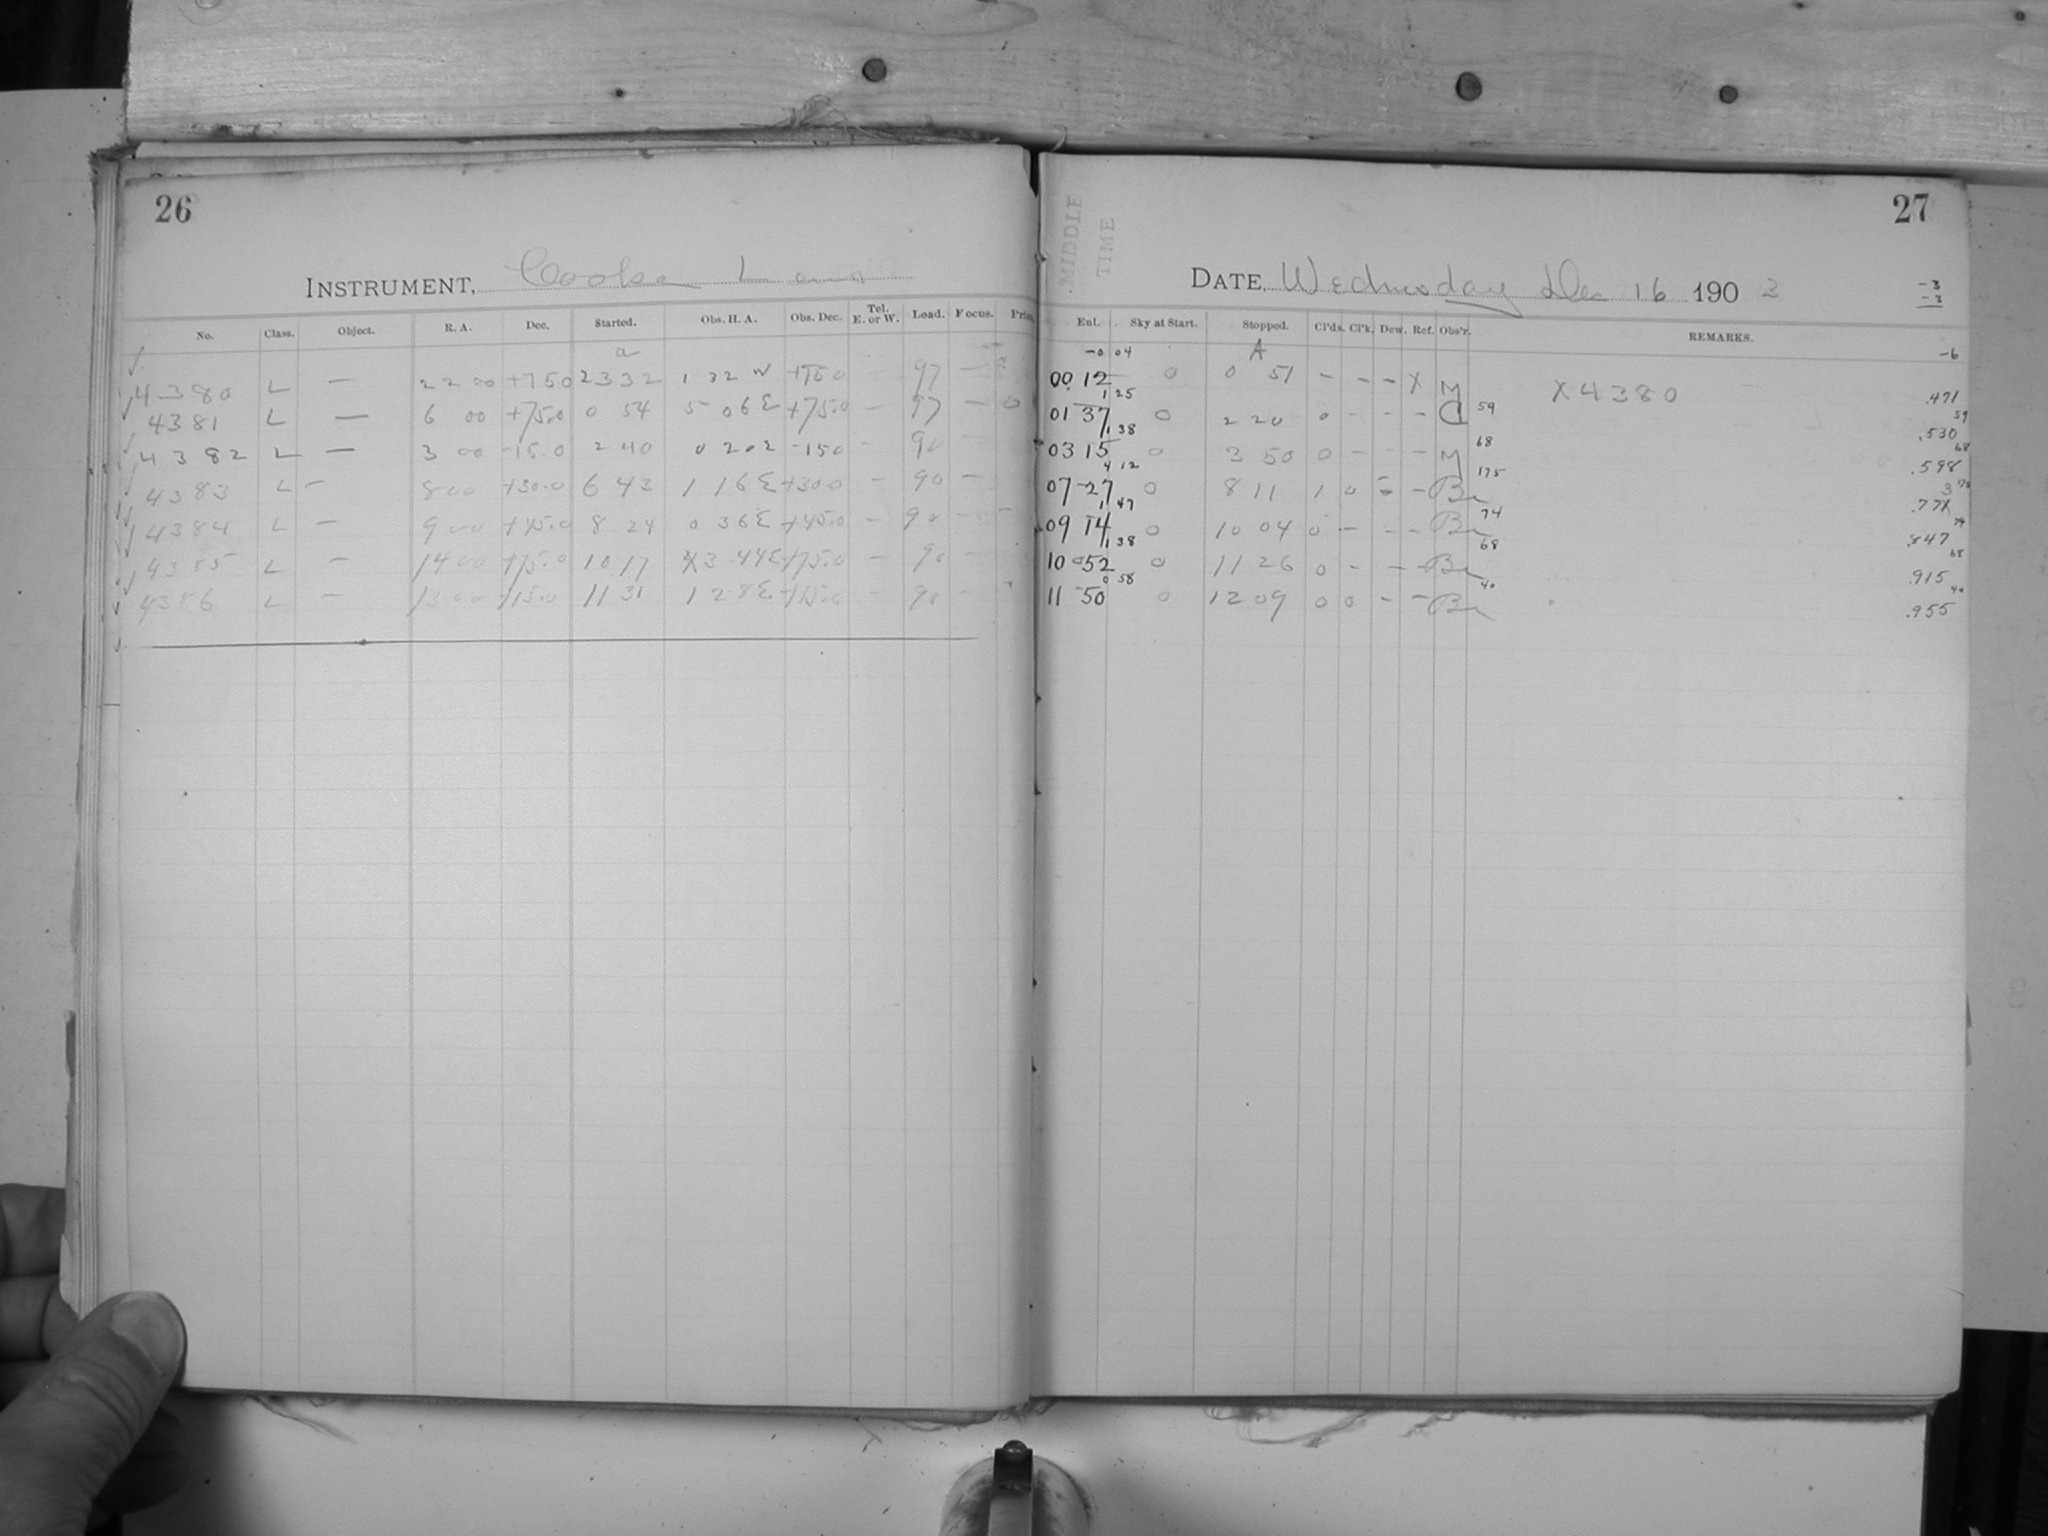 26
INSTRUMENT, Cooke Lens
No. Class. Object. R. A. Dec. Started. Obs. H. A. Obs. Dec. Tel. E. or W. Load. Focus.
a
4380 L — 22 00 +75 0 23 32 1 32 W +75 0 — 97 —
4381 L — 6 00 +75.0 0 54 5 06 E +75.0 — 97 — 0
4382 L — 3 00 -15.0 2 40 0 20 E -15 0 — 90
4383 L — 8 00 +30.0 6 43 1 16 E +30 0 — 90 —
4384 L — 9 00 +45.0 8 24 0 36 E +45.0 — 90 —
4385 L — 14 00 +75.0 10 17 3 44 E +75.0 — 90 —
4386 L — 13 00 +15.0 11 31 1 28 E +15.0 — 90 —
27
MIDDLE
TIME
DATE, Wednesday Dec 16 1903
-3
-3
Enl. Sky at Start. Stopped. Cl'ds. Cl'k. Dew. Ref. Obs'r. REMARKS.
-0 04 A -6
00 12 0 0 51 - - - X M X 4380 .471
1 25 59 59
01 37 0 2 20 0 - - - C .530
1 38 68 68
03 15 0 3 50 0 - - - M .598
4 12 175
07 27 0 8 11 1 0 - - Br
1 47 74 74
09 14 0 10 04 0 - - - Br .847
1 38 68 68
10 52 0 11 26 0 - - - Br .915
0 58 40 40
11 50 0 12 09 0 0 - - Br .955